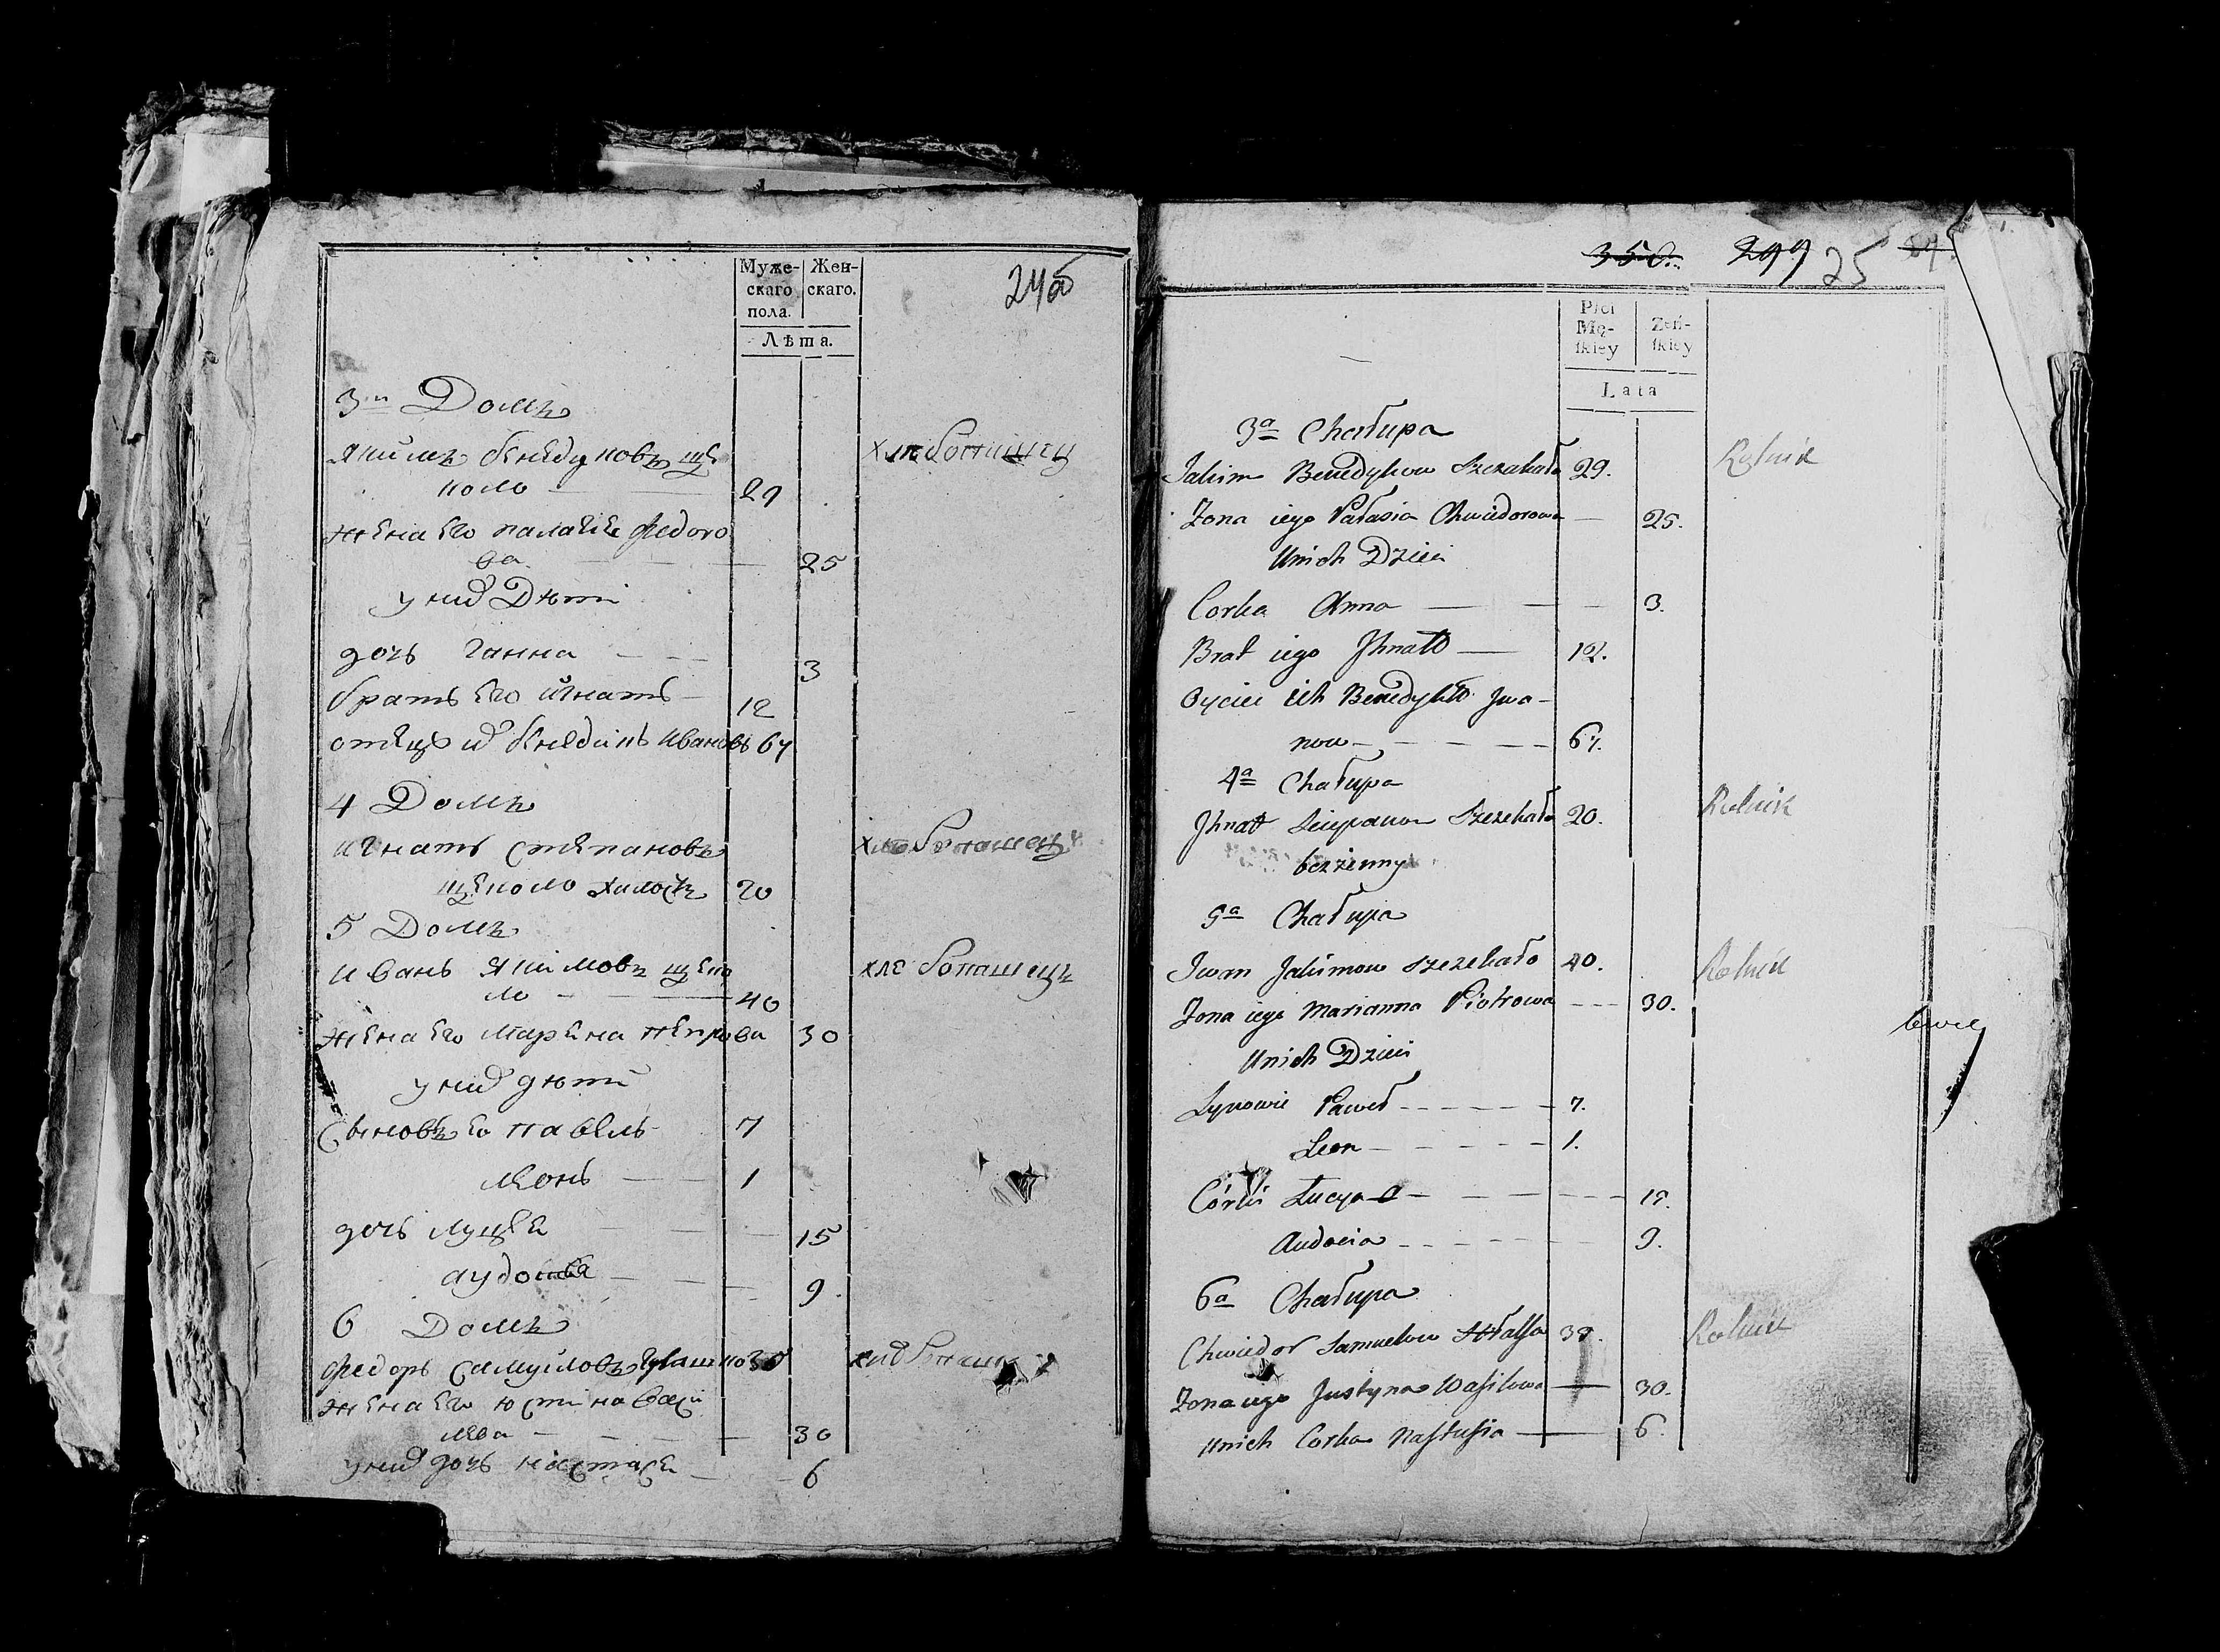 Муже-
скаго
пола.
Жен-
скаго.
Лѣта.
24об
3й Домъ
Якимъ бенедиковъ ще
коло 29
хлебопашец
жена Его палагея федоро
ва 25
у них Дети
дочь Ганна 3
братъ Его игнатъ 12
отецъ их бенедикъ Ивановъ 67
4 Домъ
игнатъ степановъ
хлебопашецъ
щеколо холостъ 20
5 Домъ
иванъ якимовъ щеко
ло 40
хлебопашецъ
жена Его марьена петрова 30
у них дети
Сыновъ Ево павелъ 7
леонъ 1
дочь луцея 15
аудотья 9
6 Домъ
федоръ Самуиловъ
жена Его юстина васи
лева 30
у них дочь настася 6
350. 299 25
Płci
Mę-
ſkiey
Żeń-
ſkiey
Lata
3a Chałupa
Jakim Benedykow Szczekało 29. Rolnik
Zona iego Pałasia Chwiedorowa 25.
Unich Dzieci
Corka Anna 3.
Brat iego Jhnatt 12.
Oyciec ich Benedykt Jwa-
now 67.
4a Chałupa
Jhnat Sciepanow Szczekało 20. Rolnik
bezzenny
5a Chałupa
Jwan Jakimow Szczekało 40. Rolnik
Zona iego Marianna Piotrowa 30.
Unich Dzieci
Synowie Paweł 7.
Leon 1.
Córki Łucya 15.
Audocia 9.
6a Chałupa
Chwiedor Samuelow 35. Rolnik
Zona iego Justyna Waſilowa 30.
Unich Corka Naſtuſia 6.